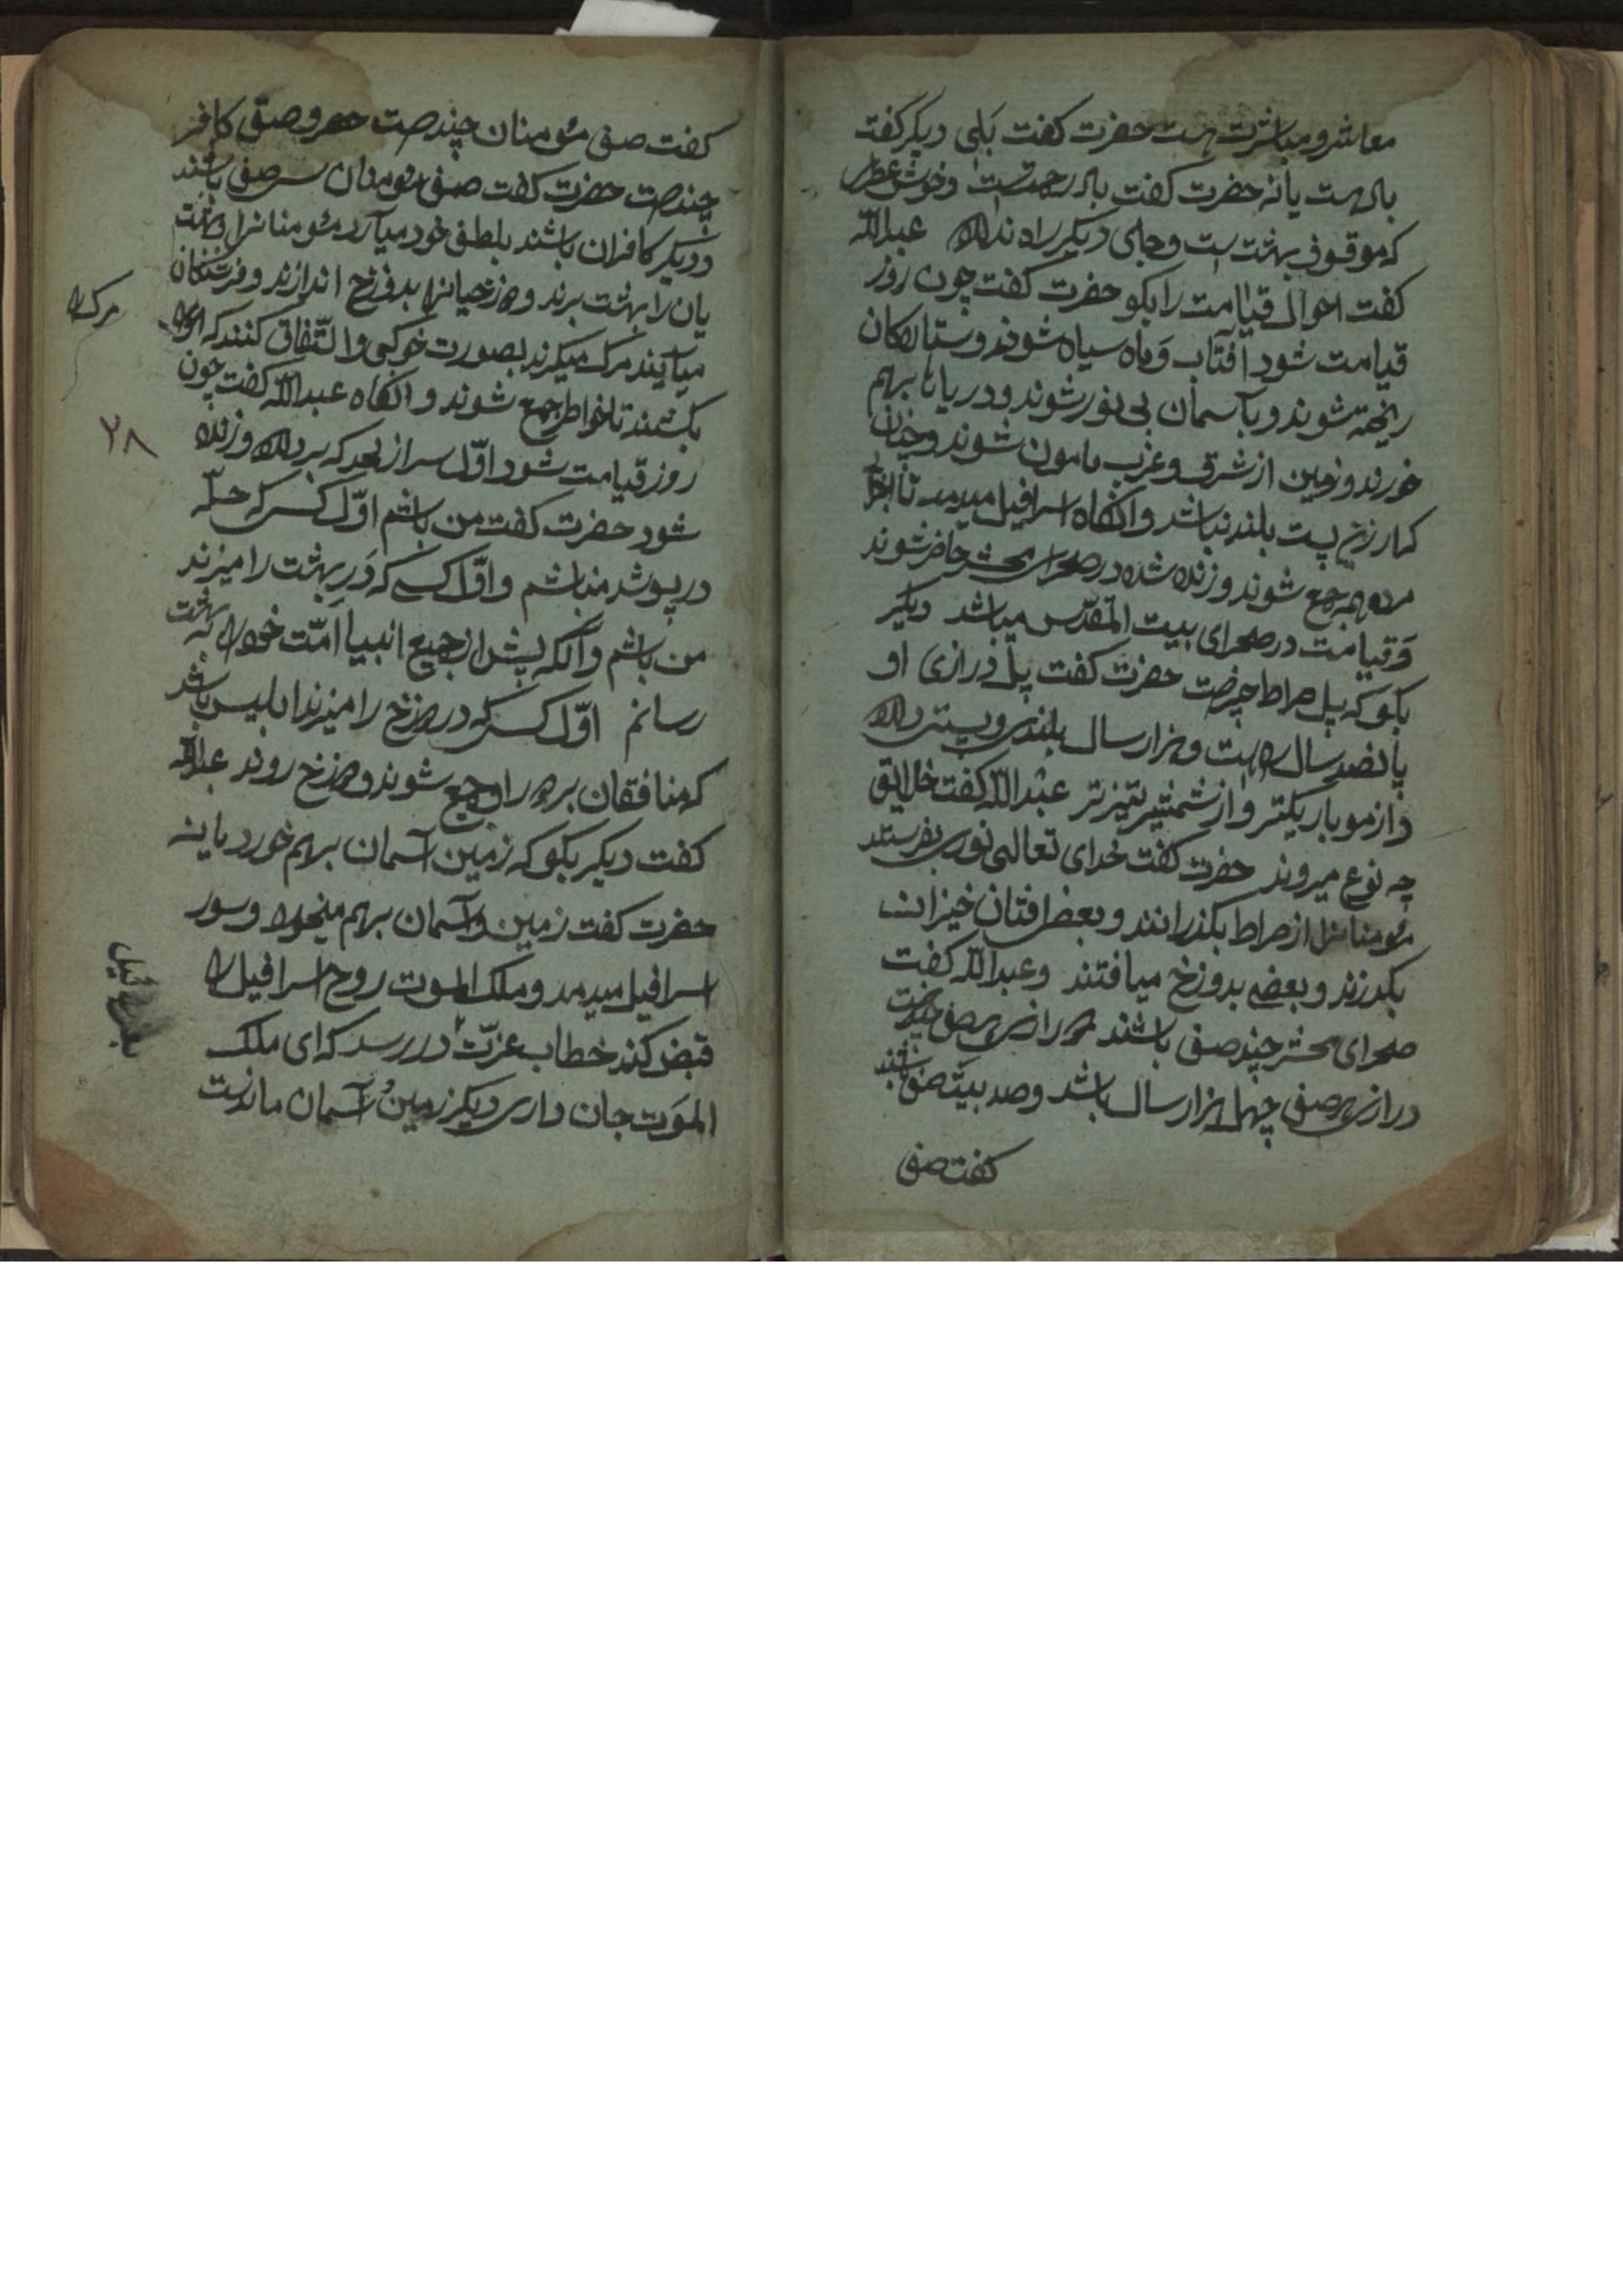 معاشر و مباشرت هست حضرت کفت بَلی دیکر کفت
باد هست یا نه حضرت کفت باد رحمتست و خوش عطر
که موقوف بهشت است و جای دیکر راه ندارد عبدالله
کفت احوال قیامت را بکو حضرت کفت چون روز
قیامت شود آفتاب وَ ماه سیاه شوند و ستارکان
ریخته شوند و بآسمان بی نور شوند و دریاها بهم
خورند و زمین از شرق و غرب هامون شوند و چنان
که در زمین پست بلند نباشد و انکاه اسرافیل میدمد تا
مرده همه جمع شوند و زنده شده در صحرای محشر حاضر شوند
وَ قیامت در صحرای بیت المقدّس میباشد دیکر
بکو که پل صراط چه صفت حضرت کفت پل درازی او
پانصد سال راهست و هزار سال بلندی و پستی دارد
و از مو باریکتر و از شمشیر تیزتر عبدالله کفت خلایق
چه نوع میروند حضرت کفت خدای تعالی نوری بفرستد
مؤمنانرا از صراط بکذرانند و بعضی افتان خیزان
بکذرند و بعضی بدوزخ میافتند و عبدالله کفت
صحرای محشر چند صف باشند درازی هر صف
درازی هر صف چهل هزار سال باشد و صد بیست صف باشند
کفت صف
کفت صف مؤمنان چند صف و صف کافر
چند صف حضرت کفت صف مؤمنان سه صف باشند
و دیکر کافران باشند بلطف خود میآرد مؤمنانرا و بهشت
یان را بهشت برند و دوزخیانرا بدوزخ اندازند و فرشتکان
میآیند مرک میکرند بصورت خوکی و اتّفاق کنند که او را
بکشند تا خواطر جمع شوند و انکاه عبدالله کفت چون
روز قیامت شود اوّل سر از لحد که بردارد و زنده
شود حضرت کفت من باشم اوّل کسی که حلّه
در پوشد من باشم و اوّل کسی که دَرِ بهشت را میزند
من باشم و آنکه پیش از جمیع انبیا امّت خود را به بهشت
رسانم اوّل کسی که در دوزخ را میزند ابلیس باشد
که منافقان بر در او جمع شوند و دوزخ روند عبدالله
کفت دیکر بکو که زمین آسمان برهم خورد یا نه
حضرت کفت زمین و آسمان برهم میخورد و سور
اسرافیل میدمد و ملک الموت روح اسرافیل را
قبض کند خطاب عزّت در رسد که ای ملک
الموَت جان داری دیکر زمین و آسمان ماندست
مرک را
۲۸